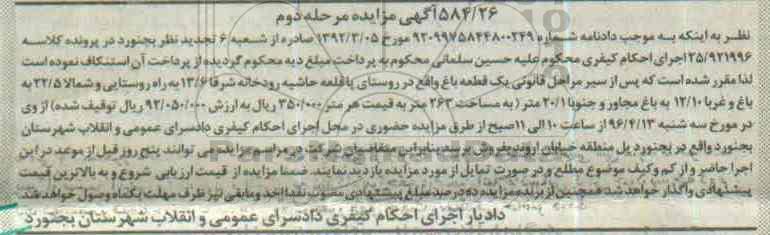 ۵۸۴/۲۶ آگهی مزایده مرحله دوم
نظر به اینکه به موجب دادنامه شماره ۹۲۰۹۹۷۵۸۴۴۸۰۰۲۴۹ مورخ ۱۳۹۲/۳/۰۵ صادره از شعبه ۶ تجدید نظر بجنورد در پرونده کلاسه
۲۵/۹۲۱۹۹۶ اجرای احکام کیفری محکوم علیه حسین سلمانی محکوم به پرداخت مبلغ دیه محکوم گردیده از پرداخت آن استنکاف نموده است
لذا مقرر شده است که پس از سیر مراحل قانونی یک قطعه باغ واقع در روستای باغلعه حاشیه رودخانه شرقا ۱۳/۶ به راه روستایی و شمالا ۲۲/۵ به
باغ و غربا ۱۲/۱۰ به باغ مجاور و جنوبا ۲۰/۱ متر (به مساحت ۲۶۳ متر به قیمت هر متر ۳۵۰/۰۰۰ ریال به ارزش ۹۲/۰۵۰/۰۰۰ ریال توقیف شده) از وی
در مورخ سه شنبه ۹۶/۴/۱۳ از ساعت ۱۰ الی ۱۱ صبح از طرق مزایده حضوری در محل اجرای احکام کیفری دادسرای عمومی و انقلاب شهرستان
بجنورد واقع در بجنورد پل منطقه خیابان اروند بفروش برسد بنابراین متقاضیان شرکت در مراسم مزایده می توانند پنج روز قبل از موعد در این
اجرا حاضر و از کم و کیف موضوع مطلع و در صورت تمایل از مورد مزایده بازدید نمایند. ضمنا مزایده از قیمت ارزیابی شروع و به بالاترین قیمت
پیشنهادی واگذار خواهد شد همچنین از برنده مزایده ده درصد مبلغ پیشنهادی مصوب نقدا اخذ و مابقی نیز ظرف مهلت یکماه وصول خواهد شد
دادیار اجرای احکام کیفری دادسرای عمومی و انقلاب شهرستان بجنورد